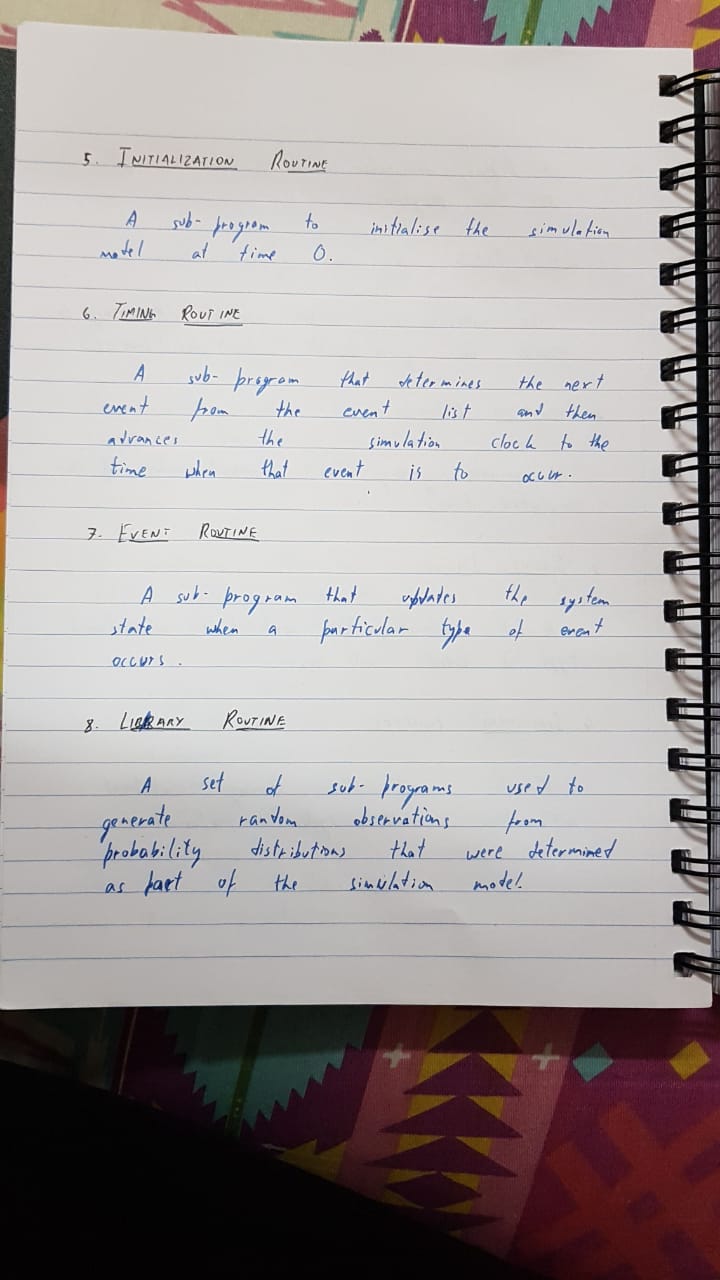 5. INITIALIZATION ROUTINE
A sub-program to initialise the simulation
model at time 0.
6. TIMING ROUTINE
A sub-program that determines the next
event from the event list and then
advances the simulation clock to the
time when that event is to occur.
7. EVENT ROUTINE
A sub-program that updates the system
state when a particular type of event
occurs.
8. LIBRARY ROUTINE
A set of sub-programs used to
generate random observations from
probability distributions that were determined
as part of the simulation model.